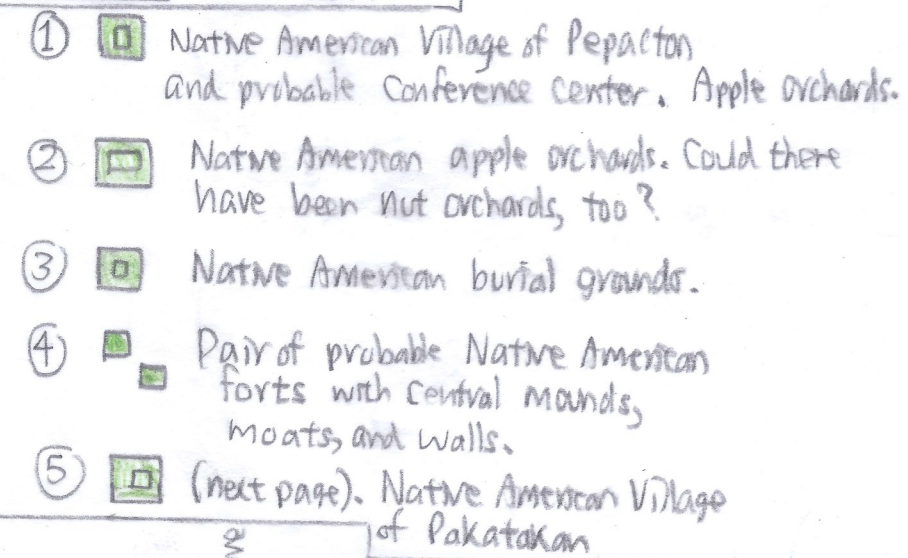 ① Native American Village of Pepacton
and probable Conference center. Apple orchards.
② Native American apple orchards. Could there
have been nut orchards, too?
③ Native American burial grounds.
④ Pair of probable Native American
forts with central mounds,
moats, and walls.
⑤ (next page). Native American Village
of Pakatakan